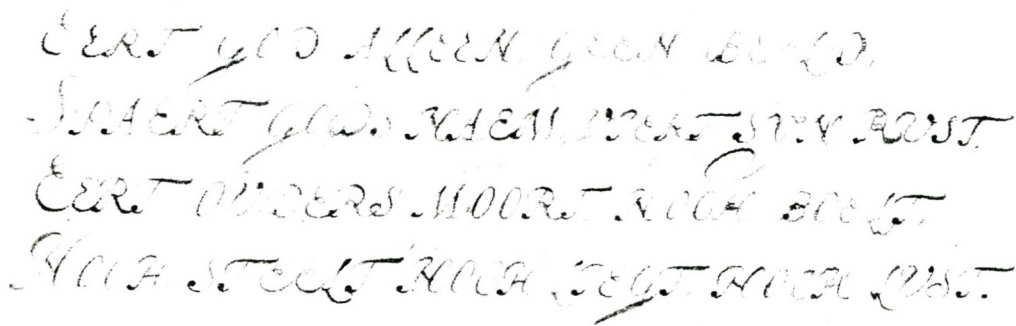 EERT GOD ALLEEN, GEEN BEELD.
SPAERT GODS NAEM, VIERT SYN RUST.
EERT OUDERS MOORT NOCH BOELT.
NOCH STEELT NOCH LIEGT. NOCH LUST.